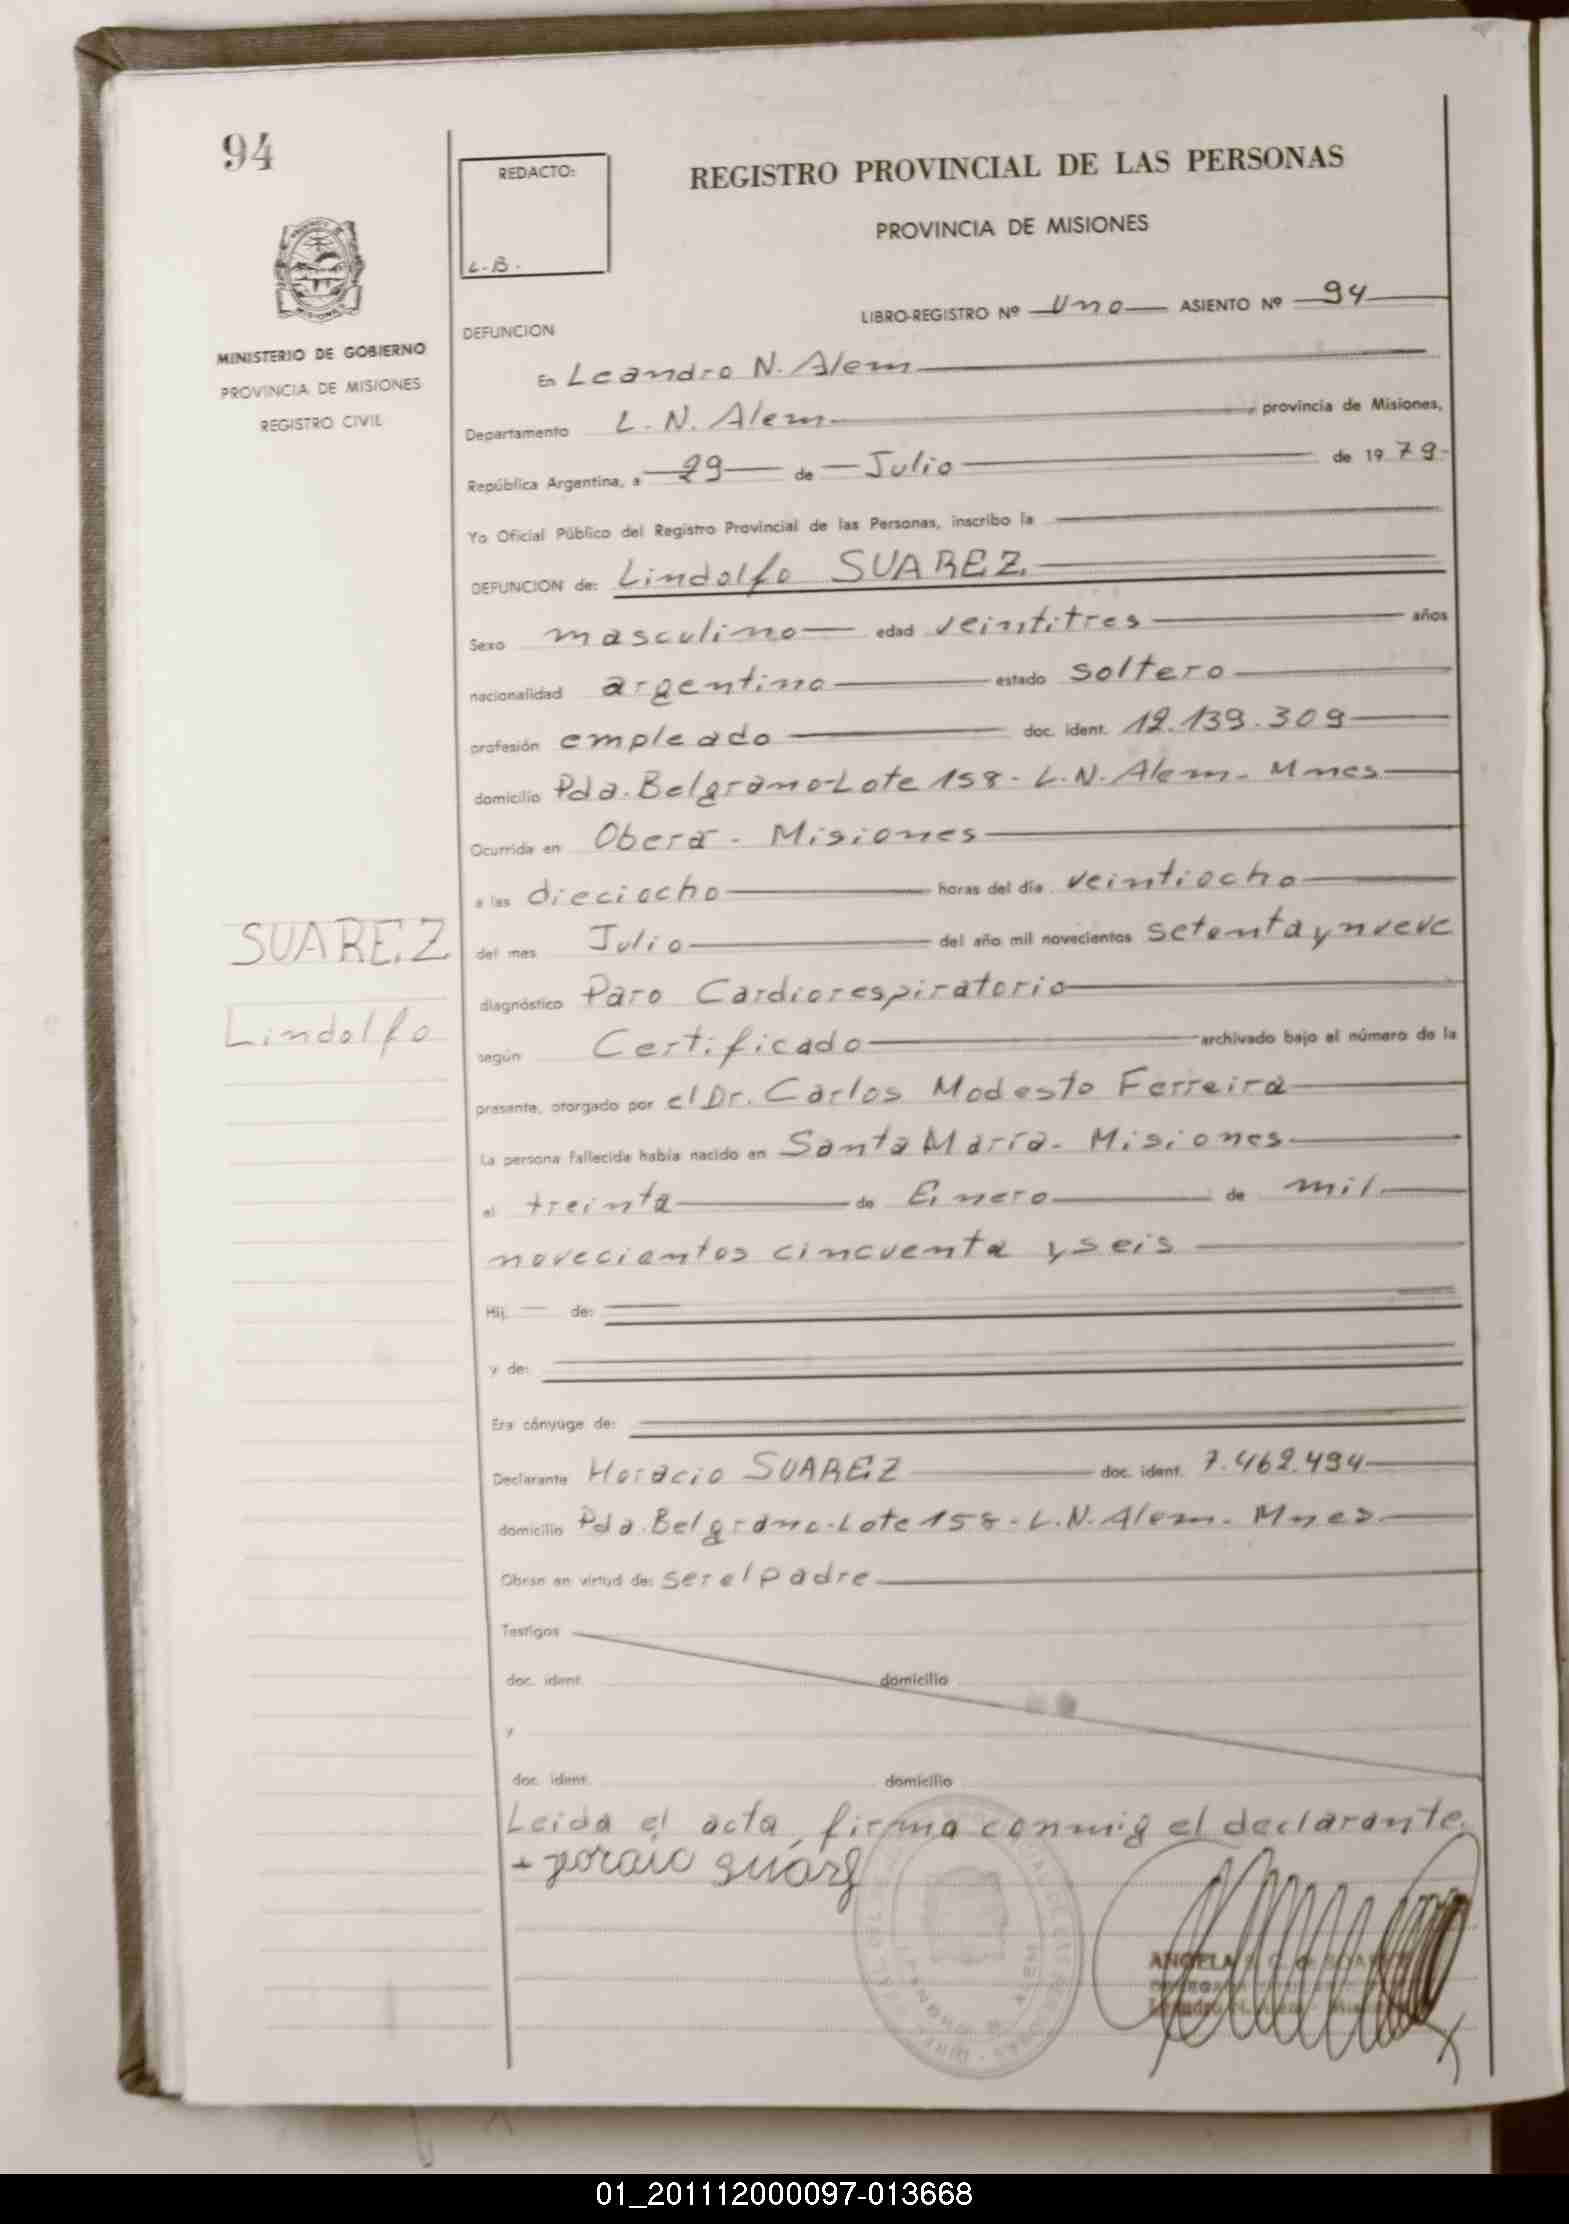 94
REDACTO:
L.B.
REGISTRO PROVINCIAL DE LAS PERSONAS
PROVINCIA DE MISIONES
MINISTERIO DE GOBIERNO
PROVINCIA DE MISIONES
REGISTRO CIVIL
LIBRO-REGISTRO Nº Uno ASIENTO Nº 94
DEFUNCION
En Leandro N. Alem
Departamento L. N. Alem , provincia de Misiones,
República Argentina, a 29 de Julio de 1979
Yo Oficial Público del Registro Provincial de las Personas, inscribo la
DEFUNCION de: Lindolfo SUAREZ
Sexo masculino edad veintitres años
nacionalidad argentino estado soltero
profesión empleado doc. ident. 12.139.309
domicilio Pda. Belgrano-Lote 158- L.N. Alem- Mnes
Ocurrida en Oberá - Misiones
a las dieciocho horas del día veintiocho
del mes Julio del año mil novecientos setenta y nueve
SUAREZ
Lindolfo
diagnóstico Paro Cardiorespiratorio
según Certificado archivado bajo el número de la
presente, otorgado por el Dr. Carlos Modesto Ferreira
La persona fallecida había nacido en Santa María- Misiones
el treinta de Enero de mil
novecientos cincuenta y seis
Hij de:
y de:
Era cónyuge de:
Declarante Horacio SUAREZ doc. ident. 7.462.494
domicilio Pda. Belgrano-Lote 158- L.N. Alem- Mnes
Obran en virtud de: ser el padre
Testigos
doc. ident. domicilio
y
doc. ident. domicilio
Leida el acta, firma conmig el declarante.
ANGELA
01_201112000097-013668